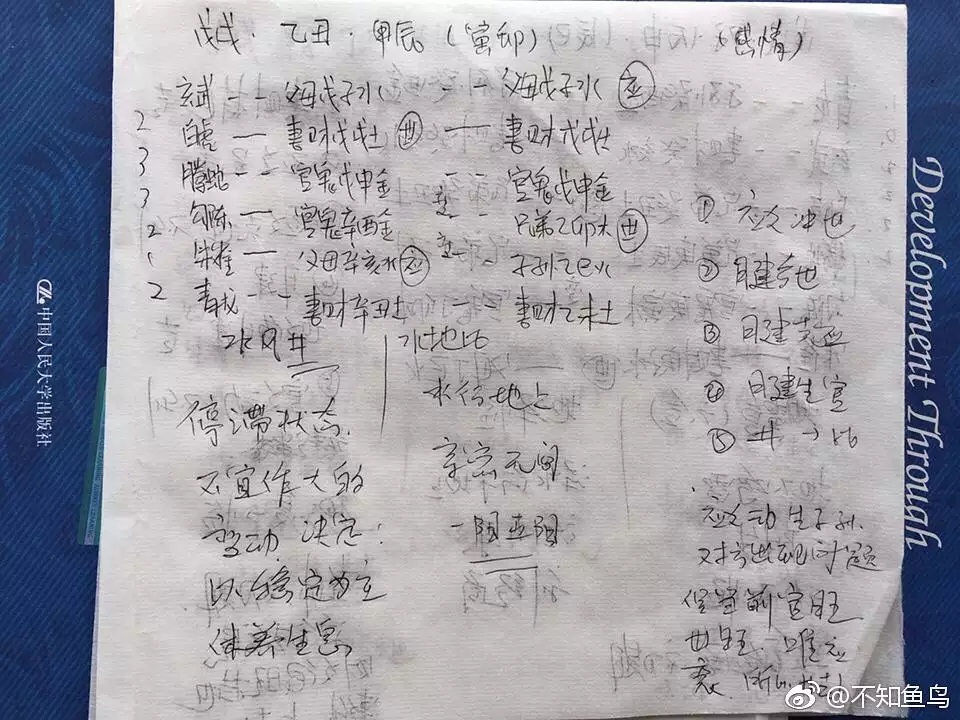 戊戌·乙丑·甲辰(寅卯)(感情)
玄武 - - 父母戊子水 - - 父母戊子水 应
2 白虎 — 妻财戊戌土 世 — 妻财戊戌土
3 腾蛇 - - 官鬼戊申金 - - 官鬼戊申金
3 勾陈 — 官鬼辛酉金 变 - - 兄弟乙卯木 世
2 朱雀 — 父母辛亥水 应 变 - - 子孙乙巳火
1
2 青龙 - - 妻财辛丑土 - - 妻财乙未土
水风井
水地比
停滞状态
不宜作大的
变动 决定:
以稳定为主
休养生息
水行地上
亲密无间
一阳五阴
① 应爻冲世
② 日建合世
③ 月建克应
④ 月建生官
⑤ 井→比
应爻动生子孙.
对方出现问题
但当前官旺
世旺. 唯应
衰.
Development Through
中国人民大学出版社
@不知鱼鸟